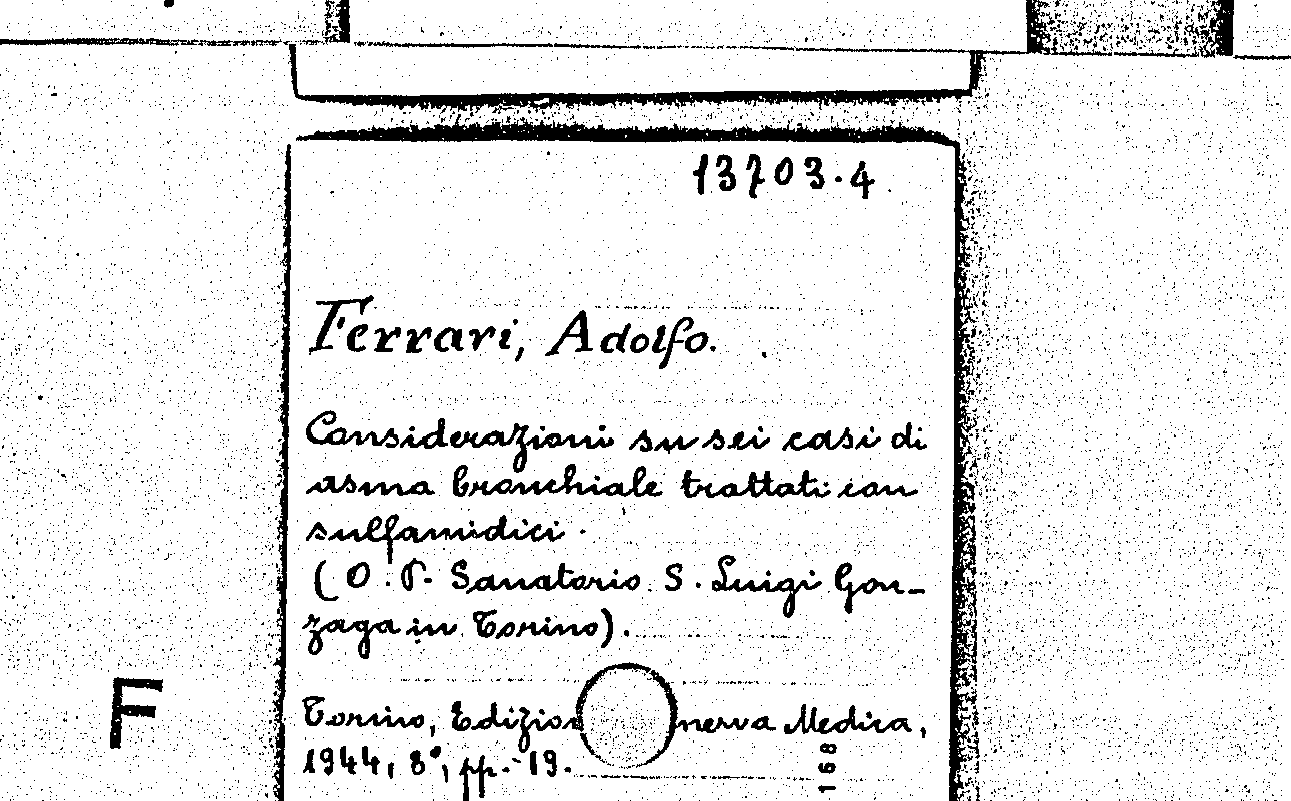 13703.4
Ferrari, Adolfo.
Considerazioni su sei casi di
asma bronchiale trattati con
sulfamidici.
(O.P. Sanatorio S. Luigi Gon-
zaga in Torino).
F
Torino, Edizion nerva Medica,
1944, 8°, pp. 19.
168